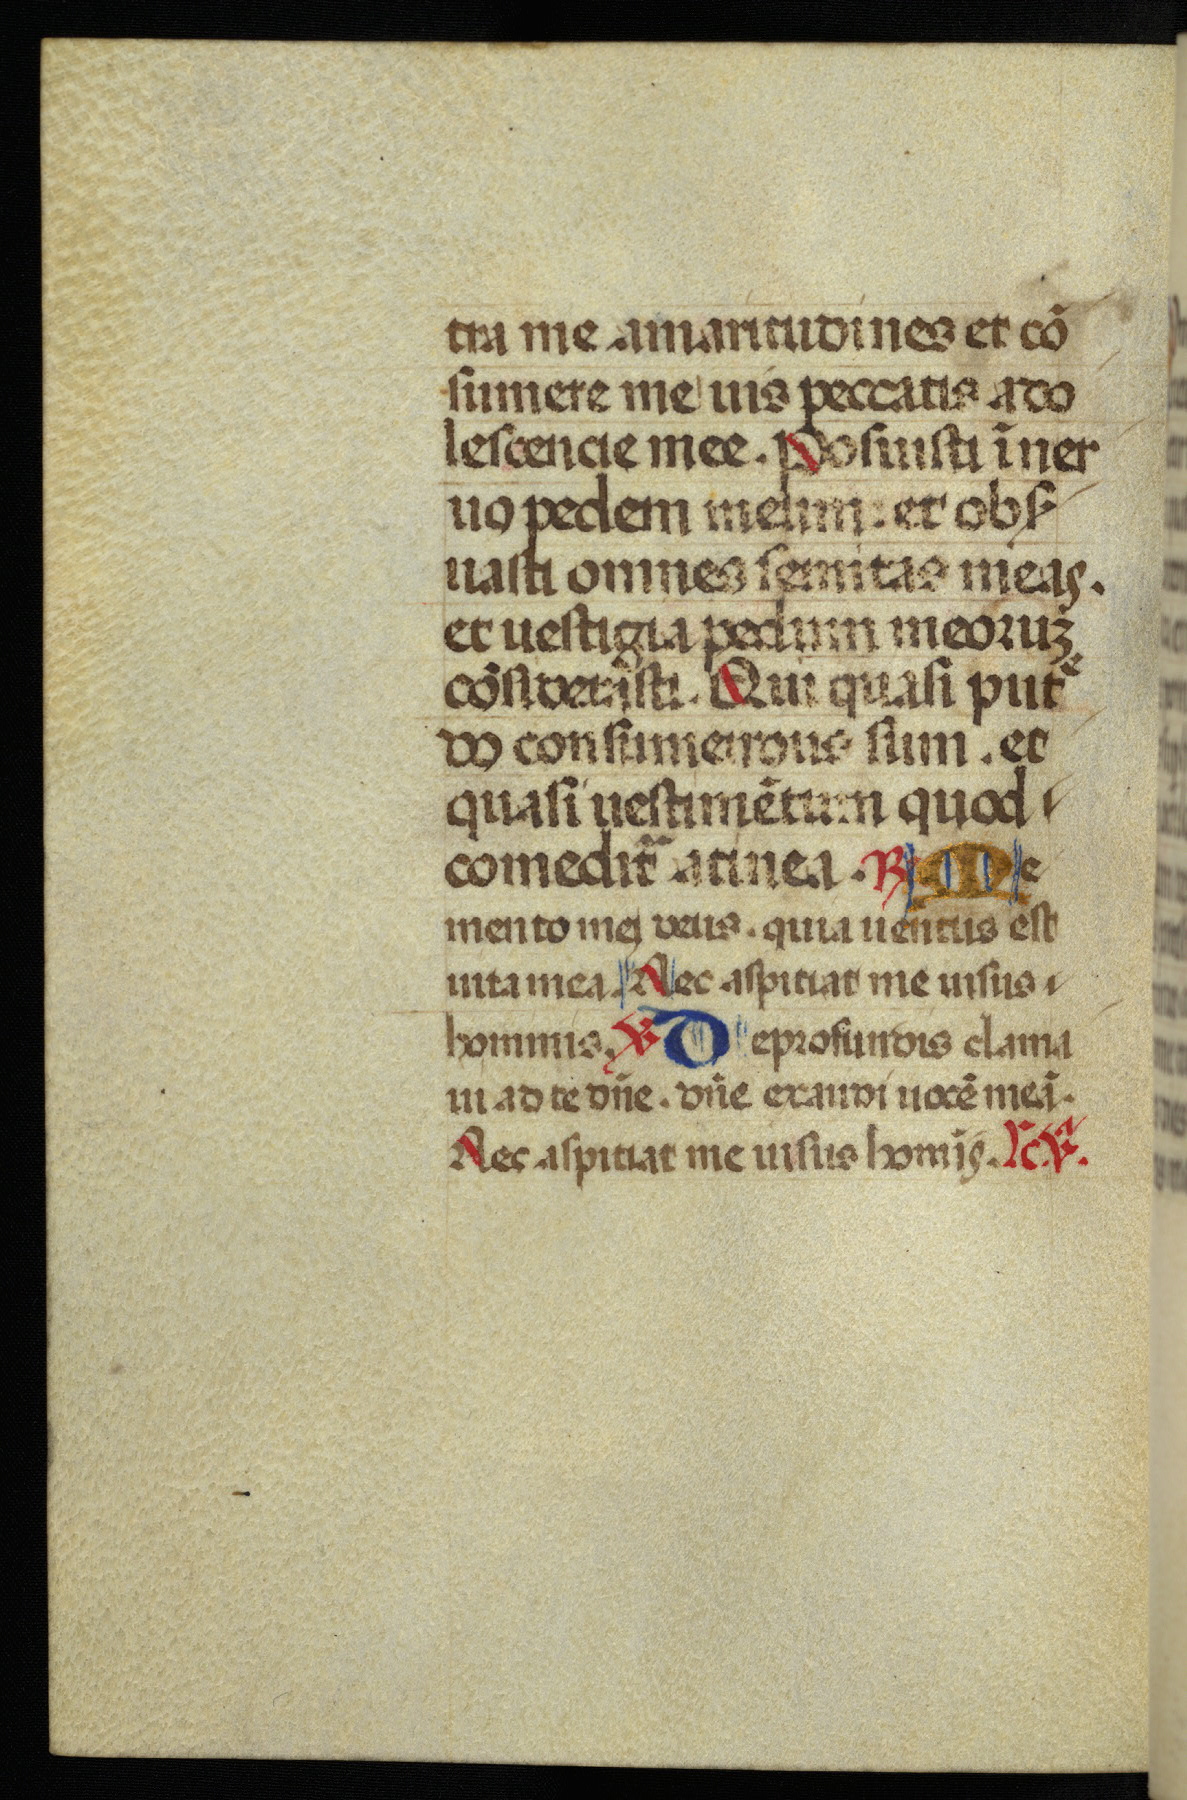 tra me amaritudines et cō
sumere me uis peccatis ado
lescencie mee. Posuisti ī ner
uo pedem meum: et obſ
uasti omnes semitas meas.
et uestigia pedum meoruꝫ
cōsiderasti. Qui quasi putͤ
do consumendus sum. et
quasi uestimētum quod
comedit᷑ a tinea. ℟ Me
mento mei deus. quia uentus est
uita mea. Nec aspitiat me uisus
hominis. ℣ De profundis clama
ui ad te dn̄e. dn̄e exaudi uocē meā.
Nec aspitiat me uisus homīs.